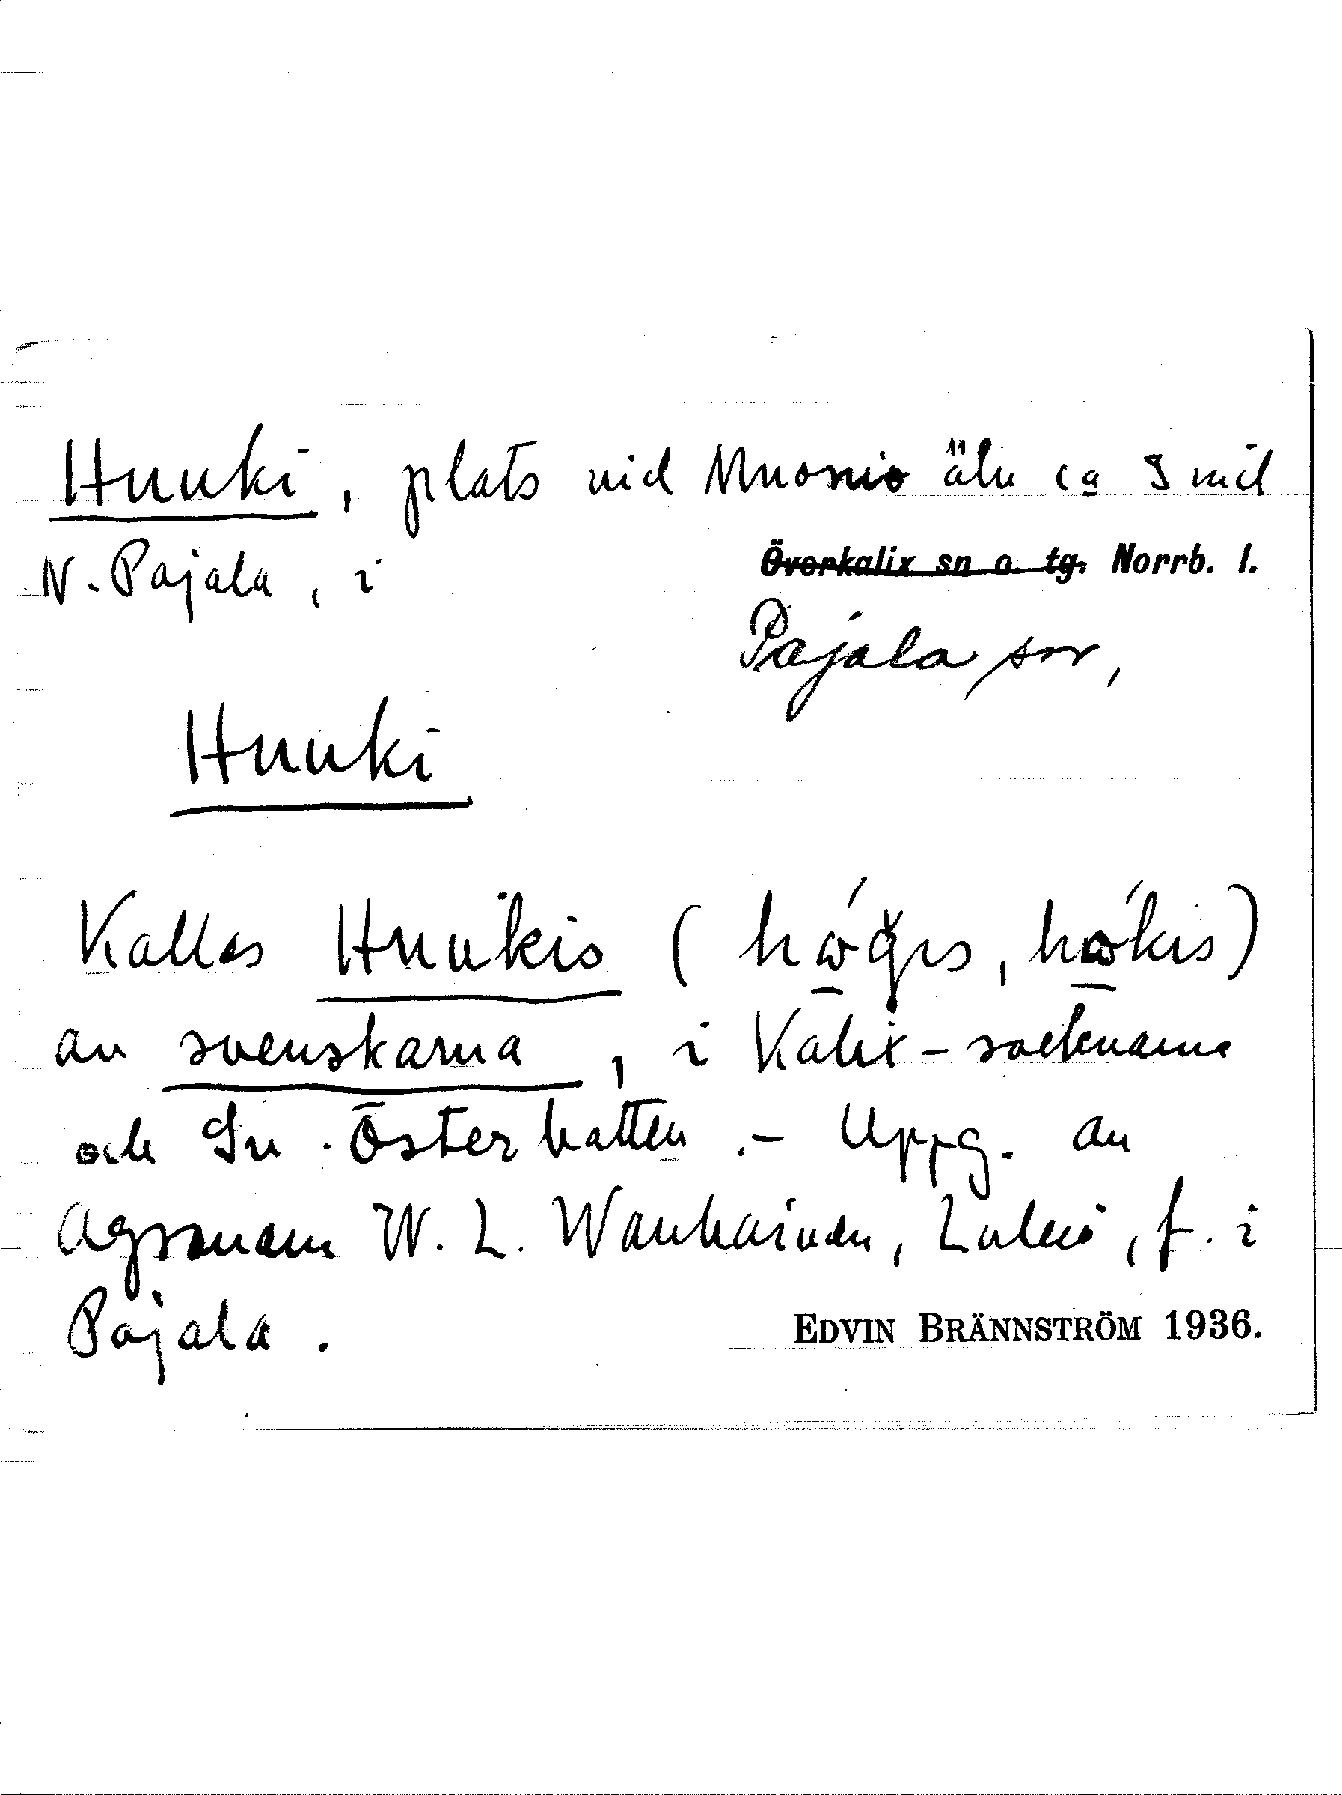 Huuki, plats vid Muonio älv ca 3 mil
N. Pajala, i Överkalix sn o. tg. Norrb. l.
Pajala sn,
Huuki
Kallas Huukis
av svenskarna, i Kalix-socknarna
och Sv. Österbotten. - Uppg. av
Agronom W. L. Wanhainen, Luleå, f. i
Pajala.
EDVIN BRÄNNSTRÖM 1936.